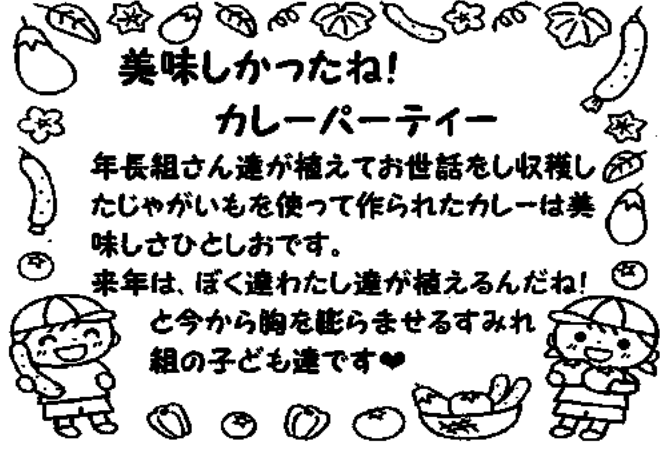 美味しかったね!
カレーパーティー
年長組さん達が植えてお世話をし収穫し
たじゃがいもを使って作られたカレーは美
味しさひとしおです。
来年は、ぼく達わたし達が植えるんだね!
と今から胸を膨らませるすみれ
組の子ども達です❤